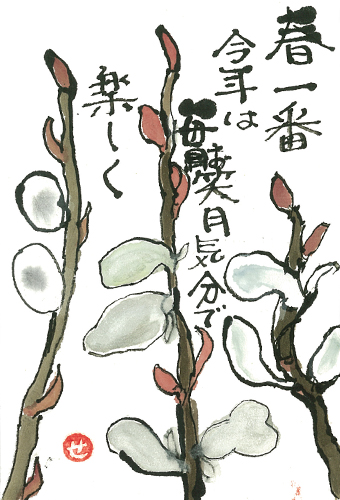 春一番
今年は
月気分で
楽しく
せ